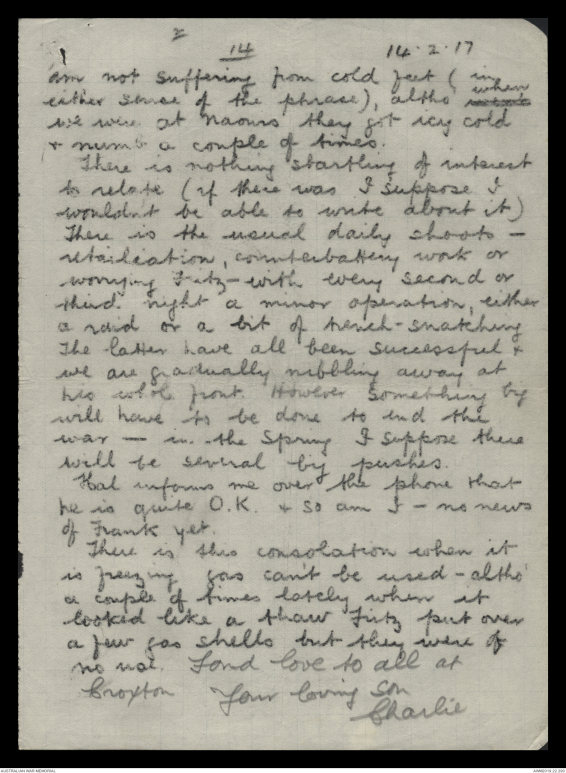 2
14
14.2.17
am not suffering from cold feet (in
either sense of the phrase), altho when
we were at Naours they got icy cold
& numb a couple of times.
There is nothing startling of interest
to relate (if there was I suppose I
wouldn't be able to write about it)
There is the usual daily shoots –
retaileation, counterbattery work or
worrying Fritz – with every second or
third night a minor operation, either
a raid or a bit of trench-snatching
The latter have all been successful &
we are gradually nibbling away at
his whole front. However something big
will have to be done to end the
war — in the Spring I suppose there
will be several big pushes.
Hal informs me over the phone that
he is quite O.K. & so am I – no news
of Frank yet.
There is this consolation when it
is freezing gas can't be used – altho'
a couple of times lately when it
looked like a thaw Fritz put over
a few gas shells but they were of
no use. Fond love to all at
Croxton Your loving son
Charlie
AUSTRALIAN WAR MEMORIAL